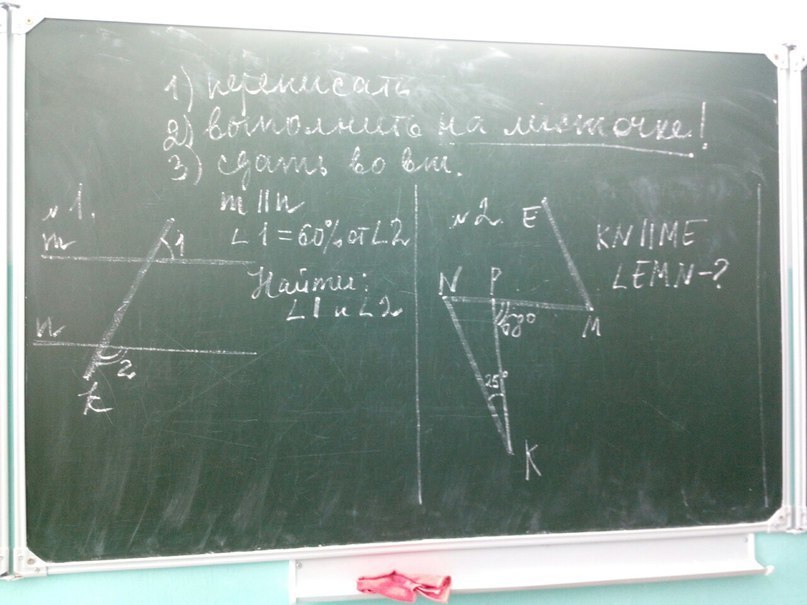 1) переписать
2) выполнить на листочке!
3) сдать во вт.
№1.
m || n
∠1 = 60% от ∠2
Найти:
∠1 и ∠2
m
1
n
2
k
№2.
KN || ME
∠EMN - ?
E
N P
M
25°
K